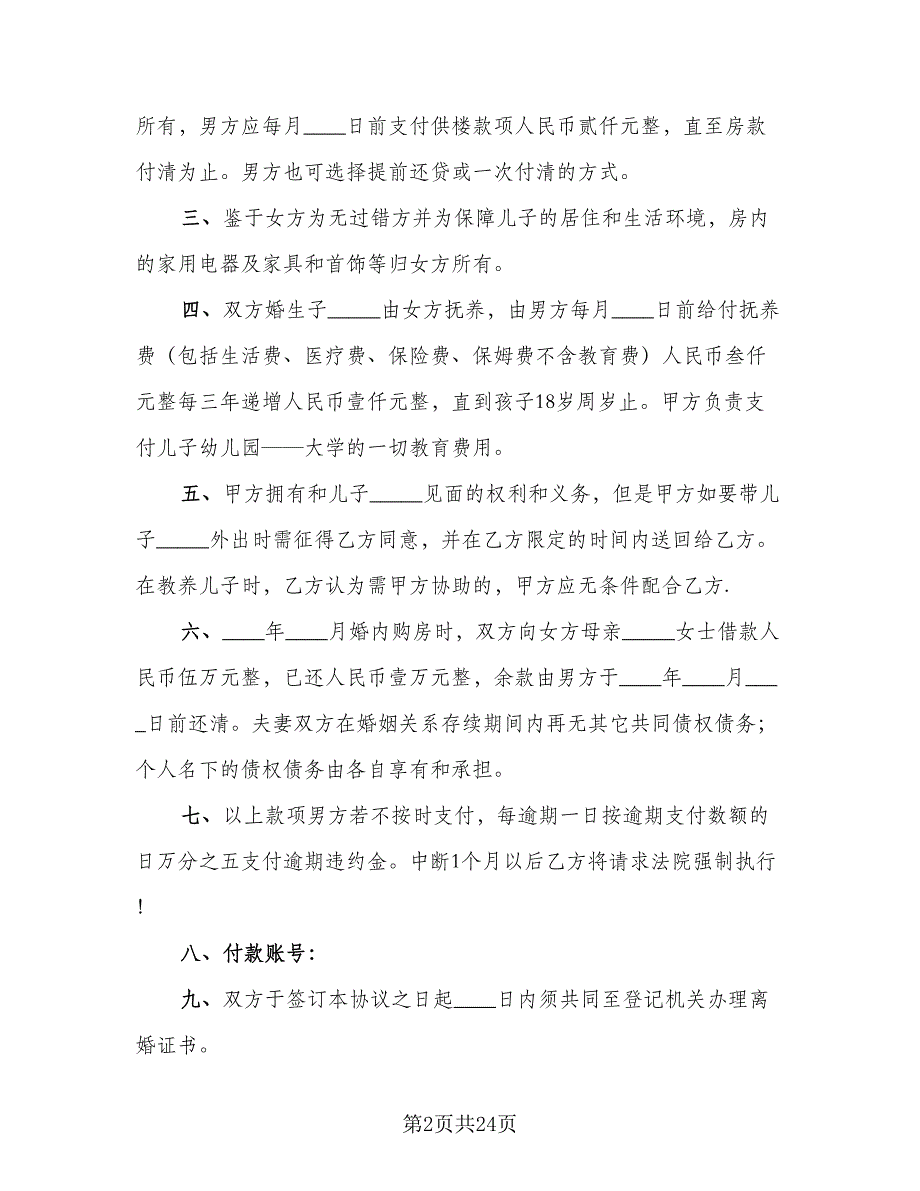 所有，男方应每月____日前支付供楼款项人民币贰仟元整，直至房款
付清为止。男方也可选择提前还贷或一次付清的方式。
三、鉴于女方为无过错方并为保障儿子的居住和生活环境，房内
的家用电器及家具和首饰等归女方所有。
四、双方婚生子_____由女方抚养，由男方每月____日前给付抚养
费（包括生活费、医疗费、保险费、保姆费不含教育费）人民币叁仟
元整每三年递增人民币壹仟元整，直到孩子18岁周岁止。甲方负责支
付儿子幼儿园——大学的一切教育费用。
五、甲方拥有和儿子_____见面的权利和义务，但是甲方如要带儿
子_____外出时需征得乙方同意，并在乙方限定的时间内送回给乙方。
在教养儿子时，乙方认为需甲方协助的，甲方应无条件配合乙方.
六、____年____月婚内购房时，双方向女方母亲_____女士借款人
民币伍万元整，已还人民币壹万元整，余款由男方于____年____月___
_日前还清。夫妻双方在婚姻关系存续期间内再无其它共同债权债务；
个人名下的债权债务由各自享有和承担。
七、以上款项男方若不按时支付，每逾期一日按逾期支付数额的
日万分之五支付逾期违约金。中断1个月以后乙方将请求法院强制执行
！
八、付款账号：
九、双方于签订本协议之日起____日内须共同至登记机关办理离
婚证书。
第2页共24页